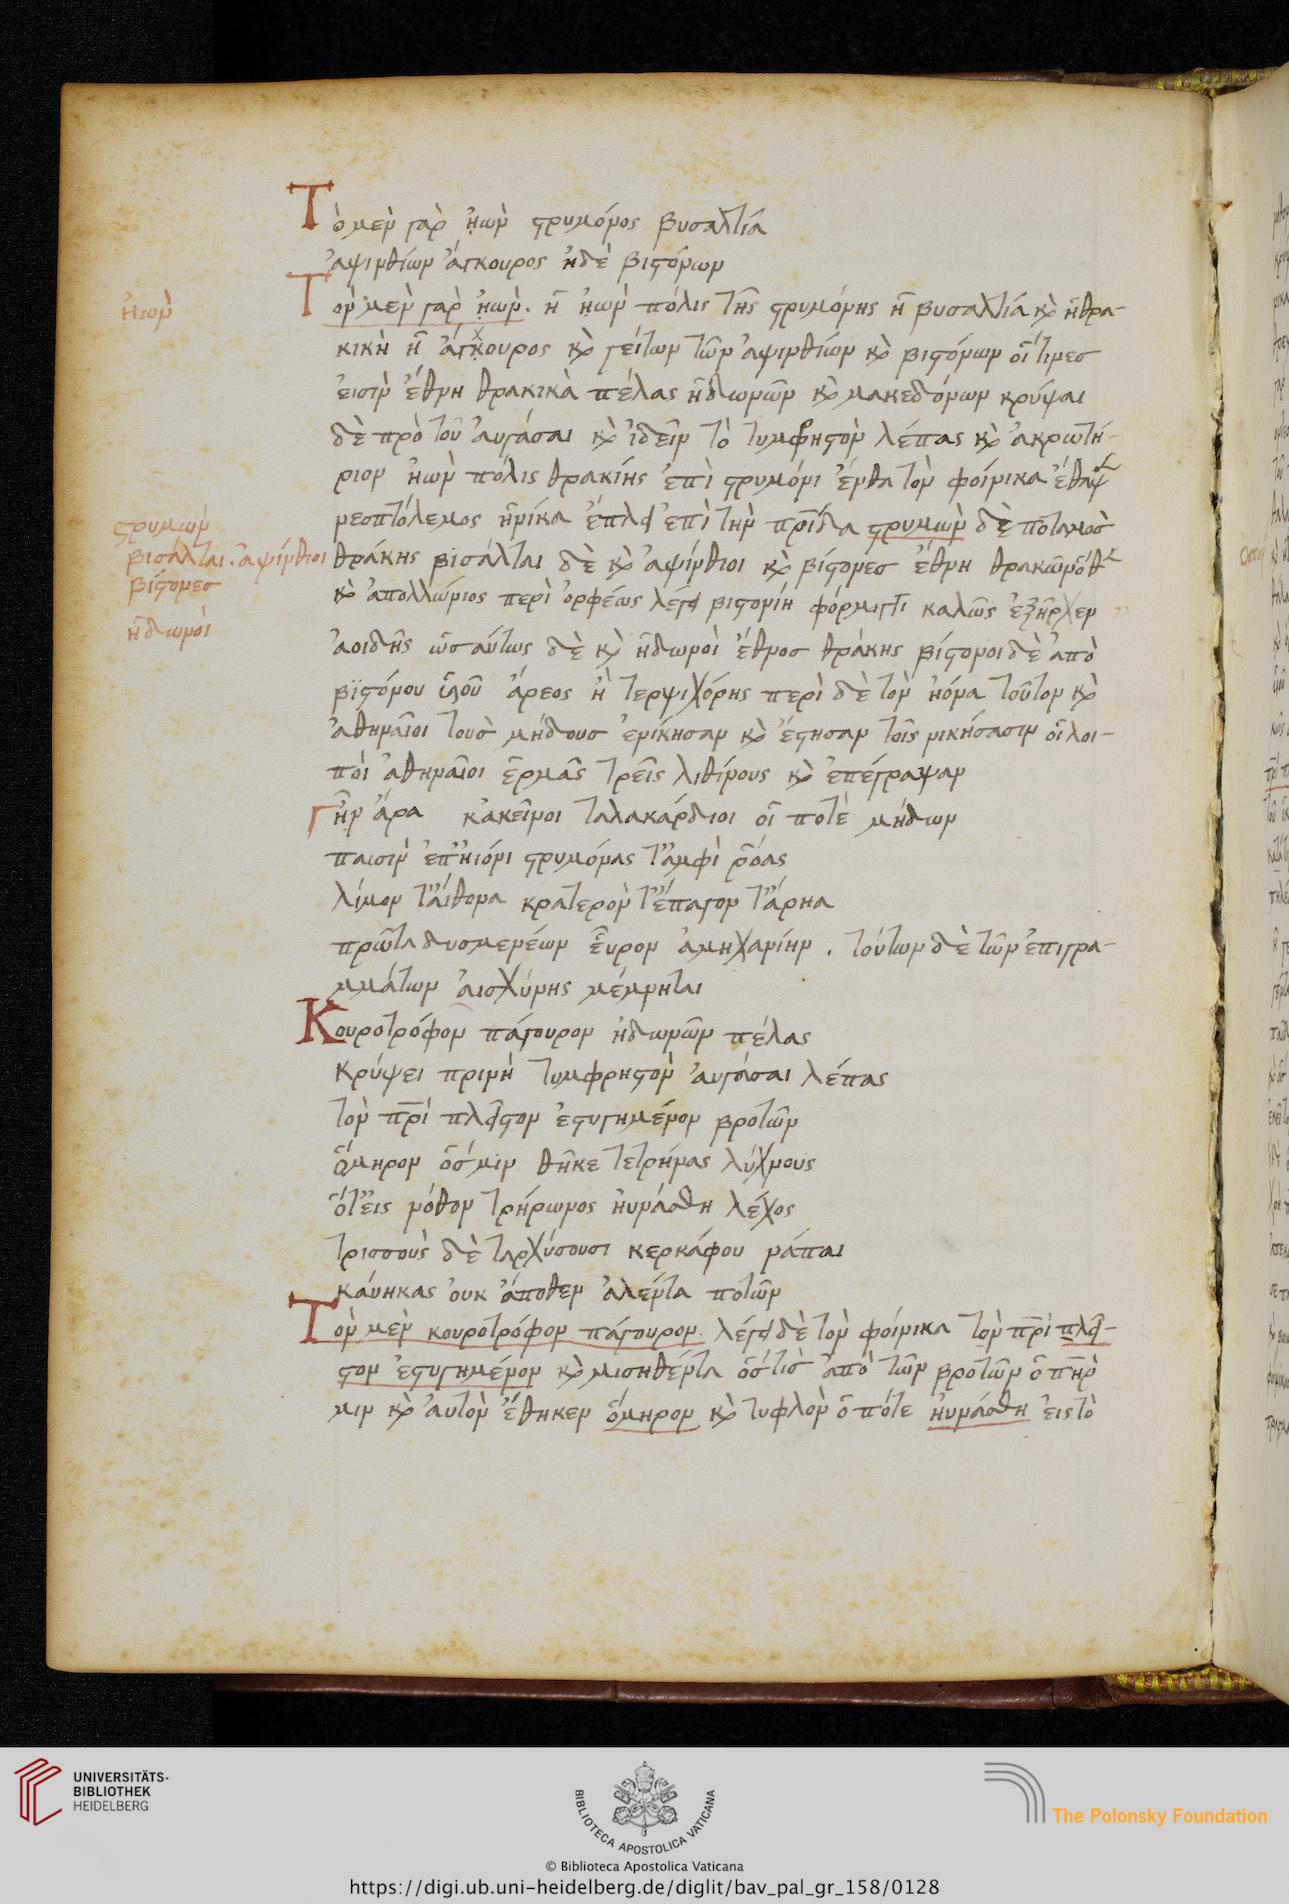 Τὸ μὲν γὰρ ἠιὼν στρυμόνος βυσαλτία
ἀψινθίων ἄγκουρος ἠδὲ βιστόνων
Τὸν μὲν γὰρ ἠιὼν. ἡ ἠιὼν πόλις τῆς στρυμόνης ἡ βυσαλτία κ̀ ἡ θρα-
κικὴ ἡ ἄγχουρος κ̀ γείτων τῶν ἀψινθίων κ̀ βιστόνων οἵτινες
εἰσὶν ἔθνη θρακικὰ πέλας ἡδωνῶν κ̀ μακεδόνων κρύψαι
δὲ πρὸ τοῦ ἀυγάσαι κ̀ ἰδεῖν τὸ τυμφρηστὸν λέπας κ̀ ἀκρωτή-
ριον ἠιὼν πόλις θρακίης ἐπὶ στρυμόνι ἔνθα τὸν φοίνικα ἔθαψ
νεοπτόλεμος ἡνίκα ἔπλει ἐπὶ τὴν πρίδα στρυμὼν δὲ ποταμὸσ
θράκης βισάλται δὲ κ̀ ἀψίνθιοι κ̀ βίστονεσ ἔθνη θρακῶν ὅθ
κ̀ ἀπολλώνιος περὶ ὀρφέως λέγει βιστονίη φόρμιγγι καλῶς ἐξῆρχεν
ἀοιδῆς ὡσαύτως δὲ κ̀ ἡδωνοὶ ἔθνοσ θράκης βίστονοι δὲ ἀπὸ
βϊστόνου ὑιοῦ ἄρεος ἢ τερψιχόρης περὶ δὲ τὸν ἠιόνα τοῦτον κ̀
ἀθηναῖοι τουσ μήδουσ ἐνίκησαν κ̀ ἔστησαν τοῖς νικήσασιν οἱ λοι-
ποὶ ἀθηναῖοι ἑρμᾶς τρεῖς λιθίνους κ̀ ἐπέγραψαν
ἦν ἄρα κἀκεῖνοι ταλακάρδιοι οἵ ποτὲ μήδων
παισὶν ἐπ' ἠιόνι στρυμόνας τ' ἀμφὶ ῥόας
λίμον τ' αἴθονα κρατερὸν τ' ἔπαγον τ' ἄρηα
πρῶτα δυσμενέων εὗρον ἀμηχανίην. τούτων δὲ τῶν ἐπιγρα-
μμάτων ἀισχύνης μέμνηται
Κουροτρόφον πάγουρον ἠδωνῶν πέλας
κρύψει πρινὴ τυμφρηστὸν ἀυγάσαι λέπας
τὸν πρὶ πλεῖστον ἐστυγημένον βροτῶν
ὅμηρον ὅσ μιν θῆκε τετρήνας λύχνους
ὅτ' εἰς νόθον τρήρωνος ηὐνάσθη λέχος
τρισσοὺς δὲ ταρχύσουσι κερκάφου νάπαι
κάυηκας ὀυκ ἄποθεν ἀλέντα ποτῶν
Τὸν μὲν κουροτρόφον πάγουρον. λέγει δὲ τὸν φοίνικα τὸν πρὶ πλεῖ-
στον ἐστυγημένον κ̀ μισηθέντα ὅστισ ἀπὸ τῶν βροτῶν ὁ πηρ
μιν κ̀ ἀυτὸν ἔθηκεν ὅμηρον κ̀ τυφλὸν ὁπότε ηὐνάσθη εἰς τὸ
ἠιὼν
στρυμών
βισάλται. ἀψίνθιοι
βίστονεσ
ἡδωνοί
UNIVERSITÄTS-
BIBLIOTHEK
HEIDELBERG
BIBLIOTECA APOSTOLICA VATICANA
The Polonsky Foundation
© Biblioteca Apostolica Vaticana
https://digi.ub.uni-heidelberg.de/diglit/bav_pal_gr_158/0128